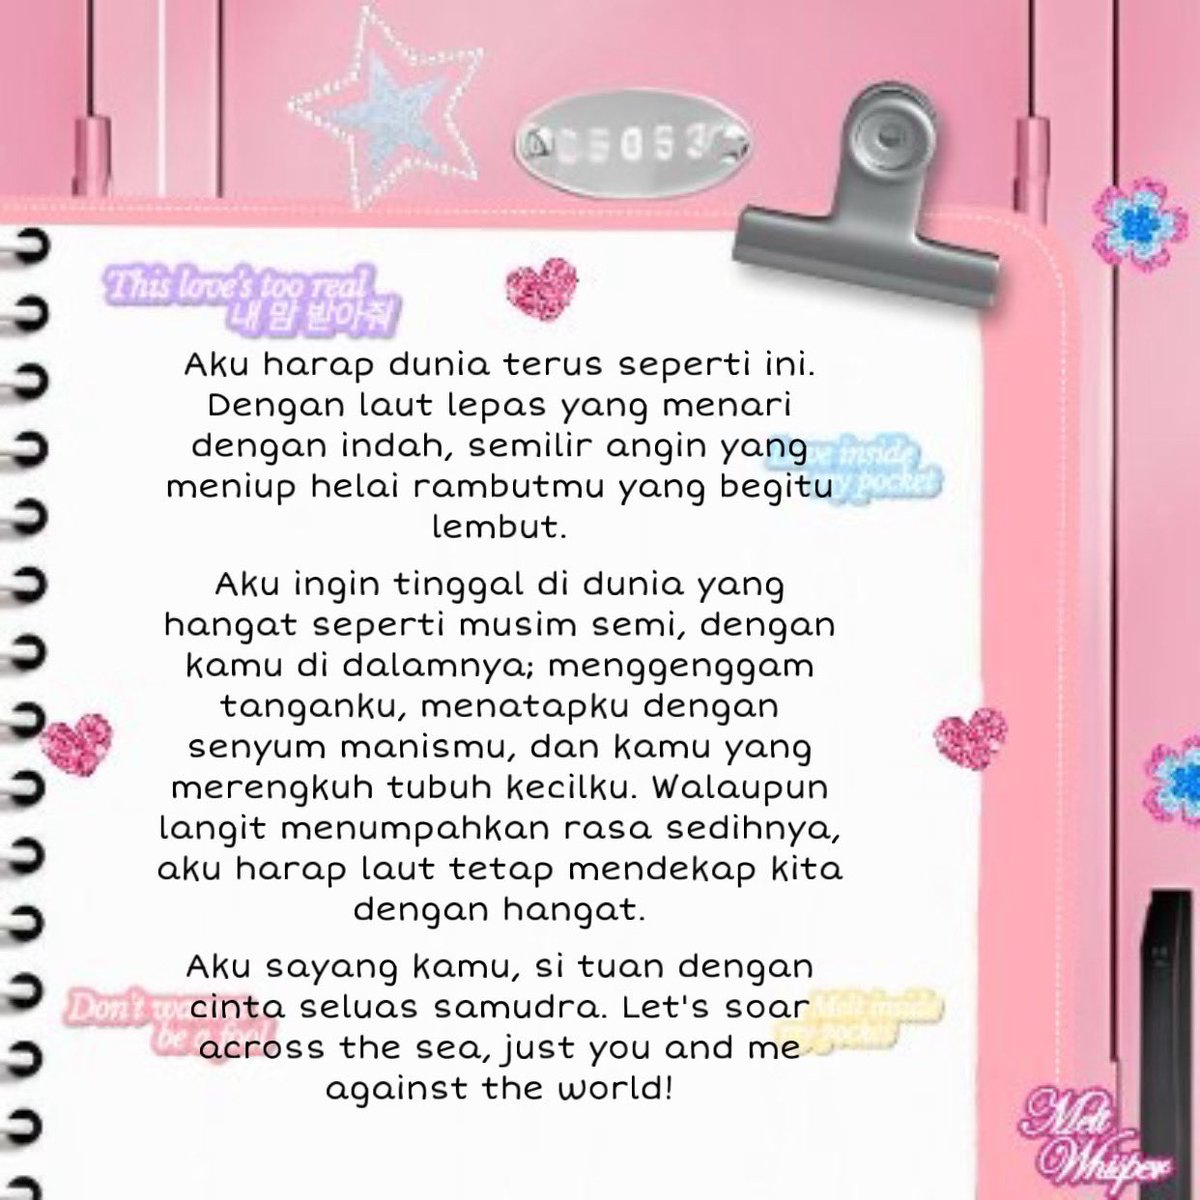 This love's too real
내 맘 받아줘
Aku harap dunia terus seperti ini.
Dengan laut lepas yang menari
dengan indah, semilir angin yang
meniup helai rambutmu yang begitu
lembut.
inside
my pocket
Aku ingin tinggal di dunia yang
hangat seperti musim semi, dengan
kamu di dalamnya; menggenggam
tanganku, menatapku dengan
senyum manismu, dan kamu yang
merengkuh tubuh kecilku. Walaupun
langit menumpahkan rasa sedihnya,
aku harap laut tetap mendekap kita
dengan hangat.
Aku sayang kamu, si tuan dengan
cinta seluas samudra. Let's soar
across the sea, just you and me
against the world!
Don't
be a fool
Melt inside
my pocket
Melt
Whisper